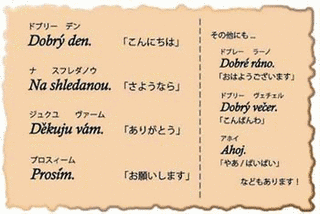 ドブリー デン
Dobrý den. 「こんにちは」
ナ スフレダノウ
Na shledanou. 「さようなら」
ジュクユ ヴァーム
Děkuju vám. 「ありがとう」
プロスィーム
Prosím. 「お願いします」
その他にも...
ドブレー ラーノ
Dobré ráno.
「おはようございます」
ドブリー ヴェチェル
Dobrý večer.
「こんばんわ」
アホイ
Ahoj.
「やあ / ばいばい」
などもあります!